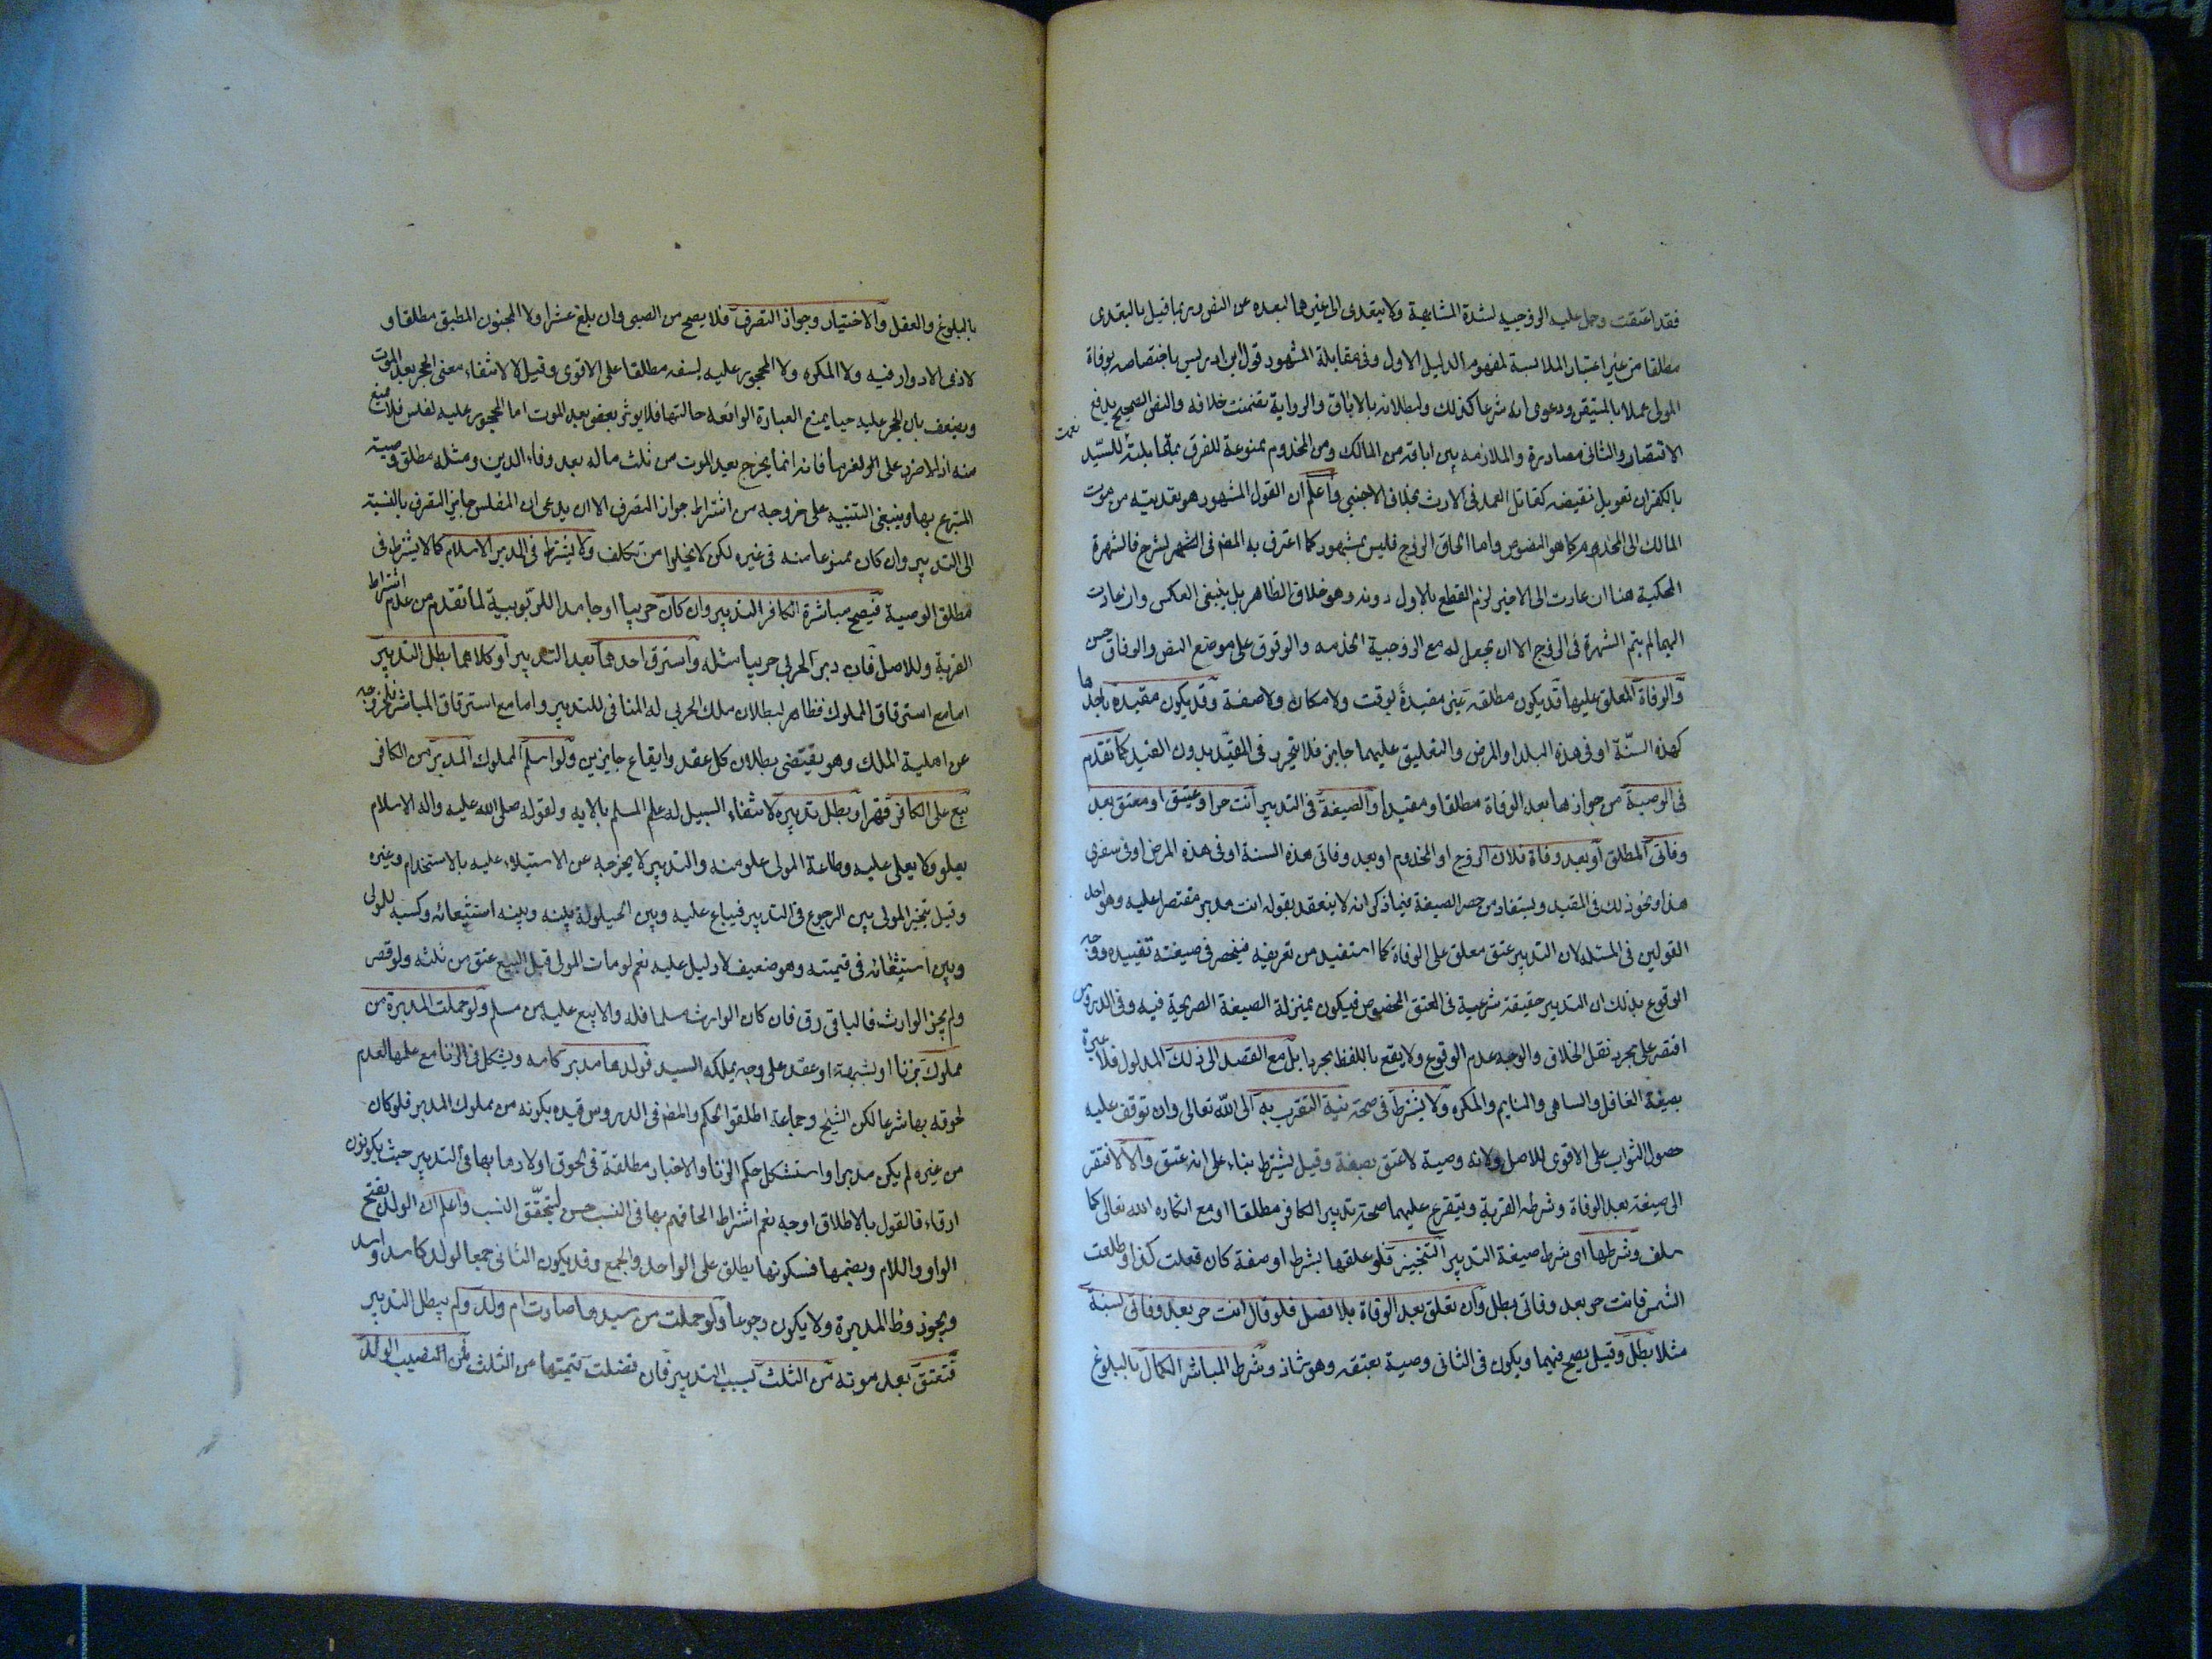 فقد اعتقت وحمل عليه الزوجيه لشدة المشابهة ولا يتعدى الى غيرهما لبعده عن النص وربما قيل بالتعدى
مطلقا من غير اعتبار الملابسة لمفهوم الدليل الاول وفى مقابلة المشهور قول ابن ادريس باختصاصه بوفاة
المولى عملا بالمتيقن ودعوى انه شرعا كذلك ولبطلانه بالاباق والرواية تضمنت خلافه والنص الصحيح يدفع
الاقتصار والثانى مصادرة والملازمه بين اباقه من المالك ومن المخدوم ممنوعة للفرق بمقابلته نعمت للسيد
بالكفران فقوبل بنقيضه كقاتل العمد فى الارث بخلاف الاجنبى واعلم ان القول المشهور هو تعديته من موت
المالك الى المخدوم كما هو المنصوص واما الحاق الزوج فليس بمشهور كما اعترف به المصنف فى الشرح فالشهرة
المحكية هنا ان عادت الى الاخير لزم القطع بالاول دونه وهو خلاف الظاهر بل ينبغى العكس وان عادت
اليهما لم يتم الشهرة فى الزوج الا ان يجعل له مع الزوجية الخدمه والوقوف على موضع النص والوفاق حسن
والوفاة المعلق عليها قد يكون مطلقه غير مقيدة بوقت ولا مكان ولا صفة وقد يكون مقيدة باحدها
كهذه السنة او فى هذه البلد او المرض والتعليق عليهما جايز فلا يتحرر فى المقيد بدون القيد كما تقدم
فى الوصية من جوازها بعد الوفاة مطلقا ومقيدا والصيغة فى التدبير انت حر او عتيق او معتق بعد
وفاتى المطلق او بعد وفاة فلان الزوج او المخدوم او بعد وفاتى هذه السنة او فى هذه المرض او فى سفرى
هذا ونحو ذلك فى المقيد ويستفاد من حصر الصيغة فيما ذكر انه لا ينعقد بقوله انت مدبر مقتصرا عليه وهو احد
القولين فى المسئلة لان التدبير عتق معلق على الوفاة كما استفيد من تعريفه فينحصر فى صيغته تفيده ووجه
الوقوع بذلك ان التدبير حقيقة شرعية فى العتق المخصوص فيكون بمنزلة الصيغة الصريحة فيه وفى الدروس
اقتصر على مجرد نقل الخلاف والوجه عدم الوقوع ولا يقع باللفظ مجردا بل مع القصد الى ذلك المدلول فلا عبرة
بصيغة الغافل والساهى والنايم والمكره ولا يشترط فى صحته نية التقرب به الى الله تعالى وان توقف عليه
حصول الثواب على الاقوى للاصل ولانه وصية لا عتق بصفة وقيل يشترط بناء على انه عتق والا لافتقر
الى صيغة بعد الوفاة وشرطه القربة ويتفرع عليهما صحة تدبير الكافر مطلقا او مع انكاره الله تعالى كما
سلف وشرطها اى شرط صيغة التدبير التنجيز فلو علقها بشرط او صفة كان فعلت كذا او طلعت
الشمس فانت حر بعد وفاتى بطل وان تعلق بعد الوفاة بلا فصل فلو قال انت حر بعد وفاتى بسنة
مثلا بطل وقيل يصح فيهما ويكون فى الثانى وصية بعتقه وهو شاذ وشرط المباشر الكمال بالبلوغ
بالبلوغ والعقل والاختيار وجواز التصرف فلا يصح من الصبى وان بلغ عشرا ولا المجنون المطبق مطلقا و
لا ذى الادوار فيه ولا المكره ولا المحجور عليه لسفه مطلقا على الاقوى وقيل لا لانتفاء معنى الحجر بعد الموت
ويضعف بان الحجر عليه حيا يمنع العبارة الواقعة حالتها فلا يوثر بعض بعد الموت اما المحجور عليه لفلس فلا منع
منه اذ لا ضرر على الغرماء فانه انما يخرج بعد الموت من ثلث ماله بعد وفاء الدين ومثله مطلق وصيته
المتبرع بها وينبغى التنبيه على خروجه من اشتراط جواز التصرف الا ان يدعى ان المفلس جايز التصرف بالنسبة
الى التدبير وان كان ممنوعا منه فى غيره لكن لا يخلو من تكلف ولا يشترط فى المدبر الاسلام كما لا يشترط فى
مطلق الوصية فيصح مباشرة الكافر التدبير وان كان حربيا او جاحدا للربوبية لما تقدم من عدم اشتراط
القربة وللاصل فان دبر الحربى حربيا مثله واسترق احدهما بعد التدبير او كلاهما بطل التدبير
اما مع استرقاق المملوك فظاهر لبطلان ملك الحربى له المنافى للتدبير واما مع استرقاق المباشر فلخروجه
عن اهلية الملك وهو يقتضى بطلان كل عقد وايقاع جايزين ولو اسلم المملوك المدبر من الكافر
بيع على الكافر قهرا وبطل تدبيره لانتفاء السبيل له على المسلم بالايه ولقوله صلى الله عليه واله الاسلام
يعلو ولا يعلى عليه وطاعة المولى علو منه والتدبير لا يخرجه عن الاستيلاء عليه بالاستخدام وغيره
وقيل يتخير المولى بين الرجوع فى التدبير فيباع عليه وبين الحيلولة بينه وبينه وكسبه للمولى
وبين استسعائه فى قيمته وهو ضعيف لا دليل عليه نعم لو مات المولى قبل البيع عتق من ثلثه ولو قصر
ولم يجز الوارث فالباقى رق فان كان الوارث مسلما فله والا بيع عليه من مسلم ولو حملت المدبرة من
مملوك بزنا او بشبهة او عقد على وجه يملكه السيد فولدها مدبر كامه ويشكل فى الزنا مع علمها لعدم
لحوقه بها شرعا لكن الشيخ وجماعة اطلقوا الحكم والمصنف فى الدروس قيده بكونه من مملوك المدبر فلو كان
من غيره لم يكن مدبرا واستشكل حكم الزنا والاخبار مطلقة فى لحوق اولادها بها فى التدبير حيث يكونون
ارقاء فالقول بالاطلاق اوجه نعم اشتراط الحاقهم بها فى النسب حسن ليتحقق النسب واعلم ان الولد بفتح
الواو واللام وبضمها فسكونها يطلق على الواحد والجمع وقد يكون الثانى جمعا لولد كاسد واسد
ويجوز وطا المدبرة ولا يكون رجوعا ولو حملت من سيدها صارت ام ولد ولم يبطل التدبير
فتعتق بعد موته من الثلث بسبب التدبير فان فضلت قيمتها من الثلث فمن نصيب الولد